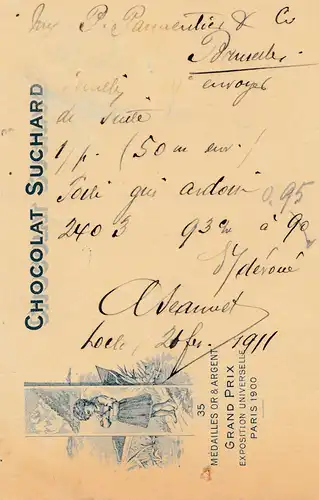 P. Parmentier & Co
Bruxelles
envoyer
de suite
1 p. (50 m env.)
Toile gris ardoise 0.95
2403 93 cm à 90
A Jeannet
Locle, 26 fev. 1911
CHOCOLAT SUCHARD
35
MÉDAILLES OR & ARGENT
GRAND PRIX
EXPOSITION UNIVERSELLE
PARIS 1900